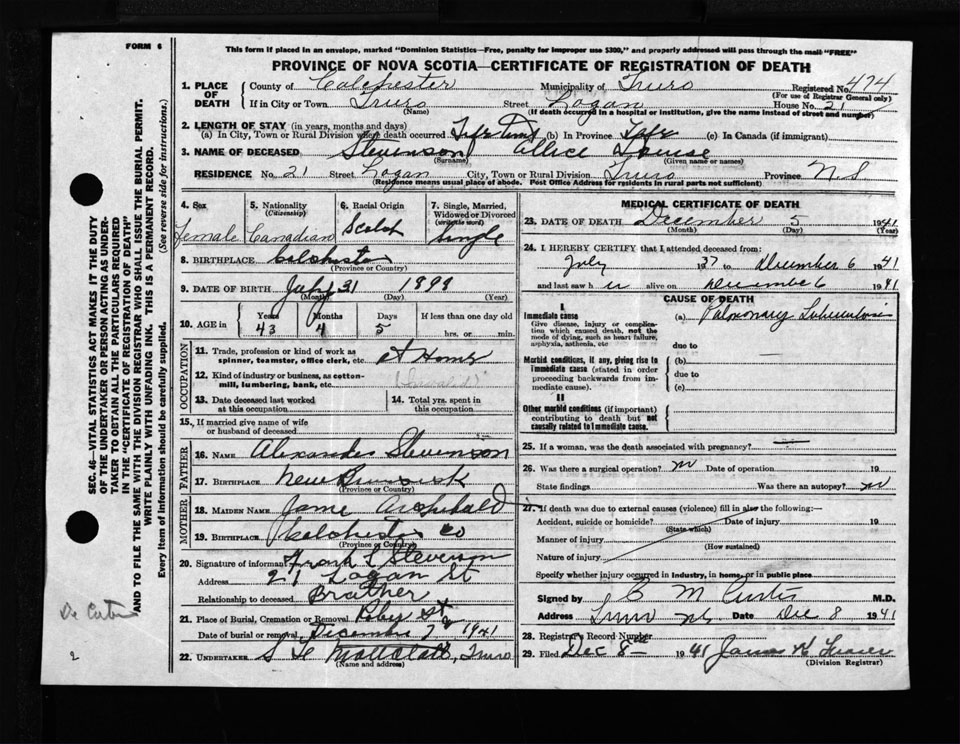 FORM 6
This form if placed in an envelope, marked "Dominion Statistics—Free, penalty for improper use $300," and properly addressed will pass through the mail "FREE"
PROVINCE OF NOVA SCOTIA—CERTIFICATE OF REGISTRATION OF DEATH
1. PLACE OF DEATH County of Colchester Municipality of Truro Registered No. 474
(For use of Registrar General only)
If in City or Town Truro Street Logan House No. 21
(Name) (If death occurred in a hospital or institution, give the name instead of street and number)
2. LENGTH OF STAY (in years, months and days)
(a) In City, Town or Rural Division where death occurred Lifetime (b) In Province Life (c) In Canada (if immigrant)
3. NAME OF DECEASED Stevenson Allice Louise
(Surname) (Given name or names)
RESIDENCE No. 21 Street Logan City, Town or Rural Division Truro Province N.S
(Residence means usual place of abode. Post Office Address for residents in rural parts not sufficient)
4. Sex
female
5. Nationality
(Citizenship)
Canadian
6. Racial Origin
Scotch
7. Single, Married, Widowed or Divorced
(write the word)
Single
8. BIRTHPLACE Colchester
(Province or Country)
9. DATE OF BIRTH 31 1899
(Month) (Day) (Year)
10. AGE in Years Months Days If less than one day old
43 4 5 hrs. or min.
OCCUPATION
11. Trade, profession or kind of work as spinner, teamster, office clerk, etc. at Home
12. Kind of industry or business, as cotton-mill, lumbering, bank, etc. (Invalid)
13. Date deceased last worked at this occupation
14. Total yrs. spent in this occupation
15. If married give name of wife or husband of deceased
FATHER
16. NAME Alexander Stevenson
17. BIRTHPLACE New Brunswick
(Province or Country)
MOTHER
18. MAIDEN NAME Jane Archibald
19. BIRTHPLACE Colchester Co
(Province or Country)
20. Signature of informant Frank L Stevenson
Address 21 Logan St
Relationship to deceased Brother
21. Place of Burial, Cremation or Removal Robie St
Date of burial or removal December 7th 1941
22. UNDERTAKER Truro
(Name and address)
MEDICAL CERTIFICATE OF DEATH
23. DATE OF DEATH December 5 1941
(Month) (Day) (Year)
24. I HEREBY CERTIFY that I attended deceased from:
July 1937 to December 6 1941
and last saw her alive on December 6 1941
CAUSE OF DEATH
I
Immediate cause
Give disease, injury or complication which caused death, not the mode of dying, such as heart failure, asphyxia, asthenia, etc
(a) Pulmonary Tuberculosis
due to
Morbid conditions, if any, giving rise to immediate cause (stated in order proceeding backwards from immediate cause).
(b)
due to
(c)
II
Other morbid conditions (if important) contributing to death but not causally related to immediate cause.
25. If a woman, was the death associated with pregnancy? —
26. Was there a surgical operation? no Date of operation 19
State findings Was there an autopsy? no
27. If death was due to external causes (violence) fill in also the following:—
Accident, suicide or homicide? Date of injury 19
(State which)
Manner of injury
(How sustained)
Nature of injury
Specify whether injury occurred in industry, in home, or in public place
Signed by C M Curtis M.D.
Address Truro N.S. Date Dec 8 1941
28. Registrar's Record Number
29. Filed Dec 8th 1941 James H
(Division Registrar)
SEC. 46—VITAL STATISTICS ACT MAKES IT THE DUTY
OF THE UNDERTAKER OR PERSON ACTING AS UNDER-
TAKER TO OBTAIN ALL THE PARTICULARS REQUIRED
IN THE "CERTIFICATE OF REGISTRATION OF DEATH"
AND TO FILE THE SAME WITH THE DIVISION REGISTRAR WHO SHALL ISSUE THE BURIAL PERMIT.
WRITE PLAINLY WITH UNFADING INK. THIS IS A PERMANENT RECORD.
Every item of information should be carefully supplied. (See reverse side for instructions.)
2